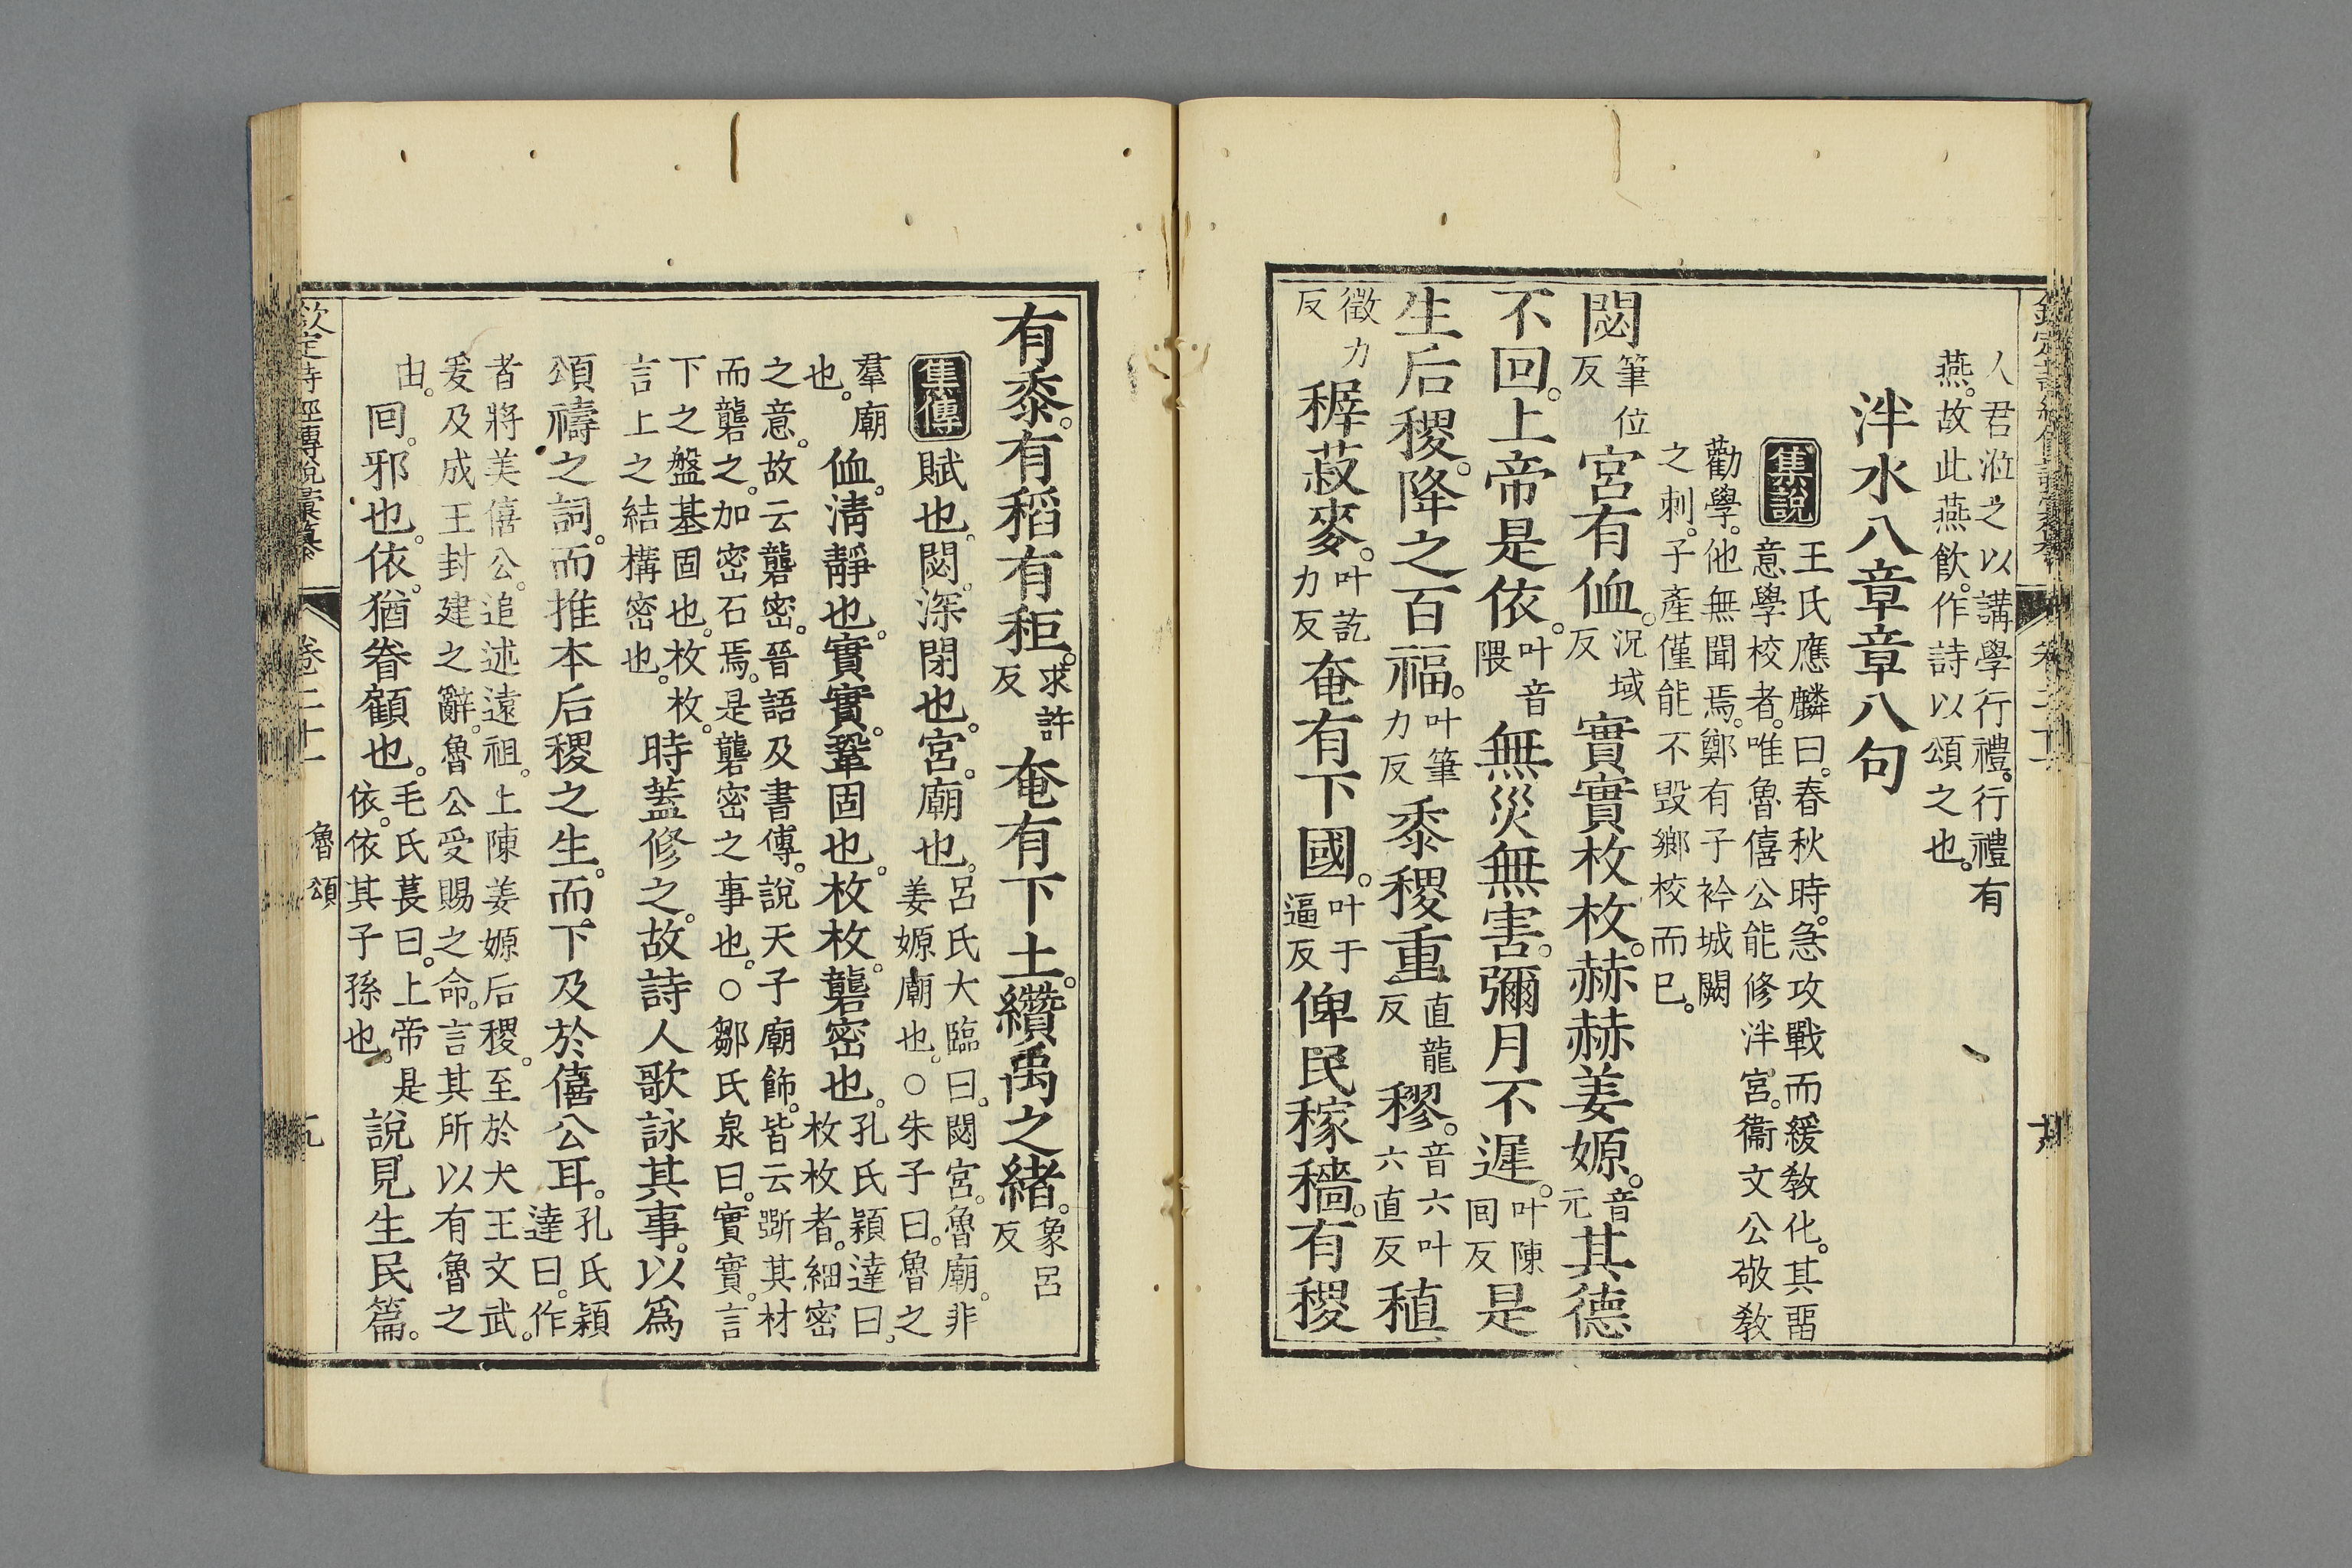 人君涖之以講學行禮。行禮有
燕。故此燕飲。作詩以頌之也。
泮水八章章八句
集說
王氏應麟曰。春秋時。急攻戰而緩敎化。其畱
意學校者。唯魯僖公能修泮宮。衞文公敬敎
勸學。他無聞焉。鄭有子衿城闕
之刺。子產僅能不毀鄉校而已。
閟筆位反宮有侐。況域反實實枚枚。赫赫姜嫄。音元其德
不回。上帝是依。叶音隈無災無害。彌月不遲。叶陳回反是
生后稷。降之百福。叶筆力反黍稷重直龍反穋。音六叶六直反稙
徵力反稺菽麥。叶訖力反奄有下國。叶于逼反俾民稼穡。有稷
有黍。有稻有秬。求許反奄有下土。纘禹之緒。象呂反
集傳
賦也。閟。深閉也。宮。廟也。呂氏大臨曰。閟宮。魯廟。非姜嫄廟也。○朱子曰。魯之
羣廟也。侐。淸靜也。實實。鞏固也。枚枚。礱密也。孔氏穎達曰。枚枚者。細密
之意。故云礱密。晉語及書傳。說天子廟飾。皆云斲其材
而礱之。加密石焉。是礱密之事也。○鄒氏泉曰。實實。言
下之盤基固也。枚枚。言上之結構密也。時蓋修之。故詩人歌詠其事。以爲
頌禱之詞。而推本后稷之生。而下及於僖公耳。孔氏穎達曰。作
者將美僖公。追述遠祖。上陳姜嫄后稷。至於大王文武。
爰及成王封建之辭。魯公受賜之命。言其所以有魯之
由。回。邪也。依。猶眷顧也。毛氏萇曰。上帝是依。依其子孫也。說見生民篇。
欽定詩經傳說彙纂
卷二十一
魯頌